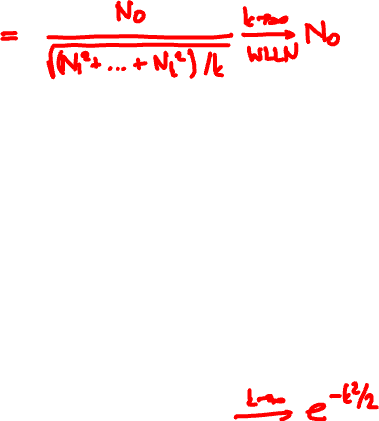 = N₀ / √((N₁² + ... + Nₖ²) / k) →(k→∞, WLLN) N₀
→(k→∞) e^(-t²/2)